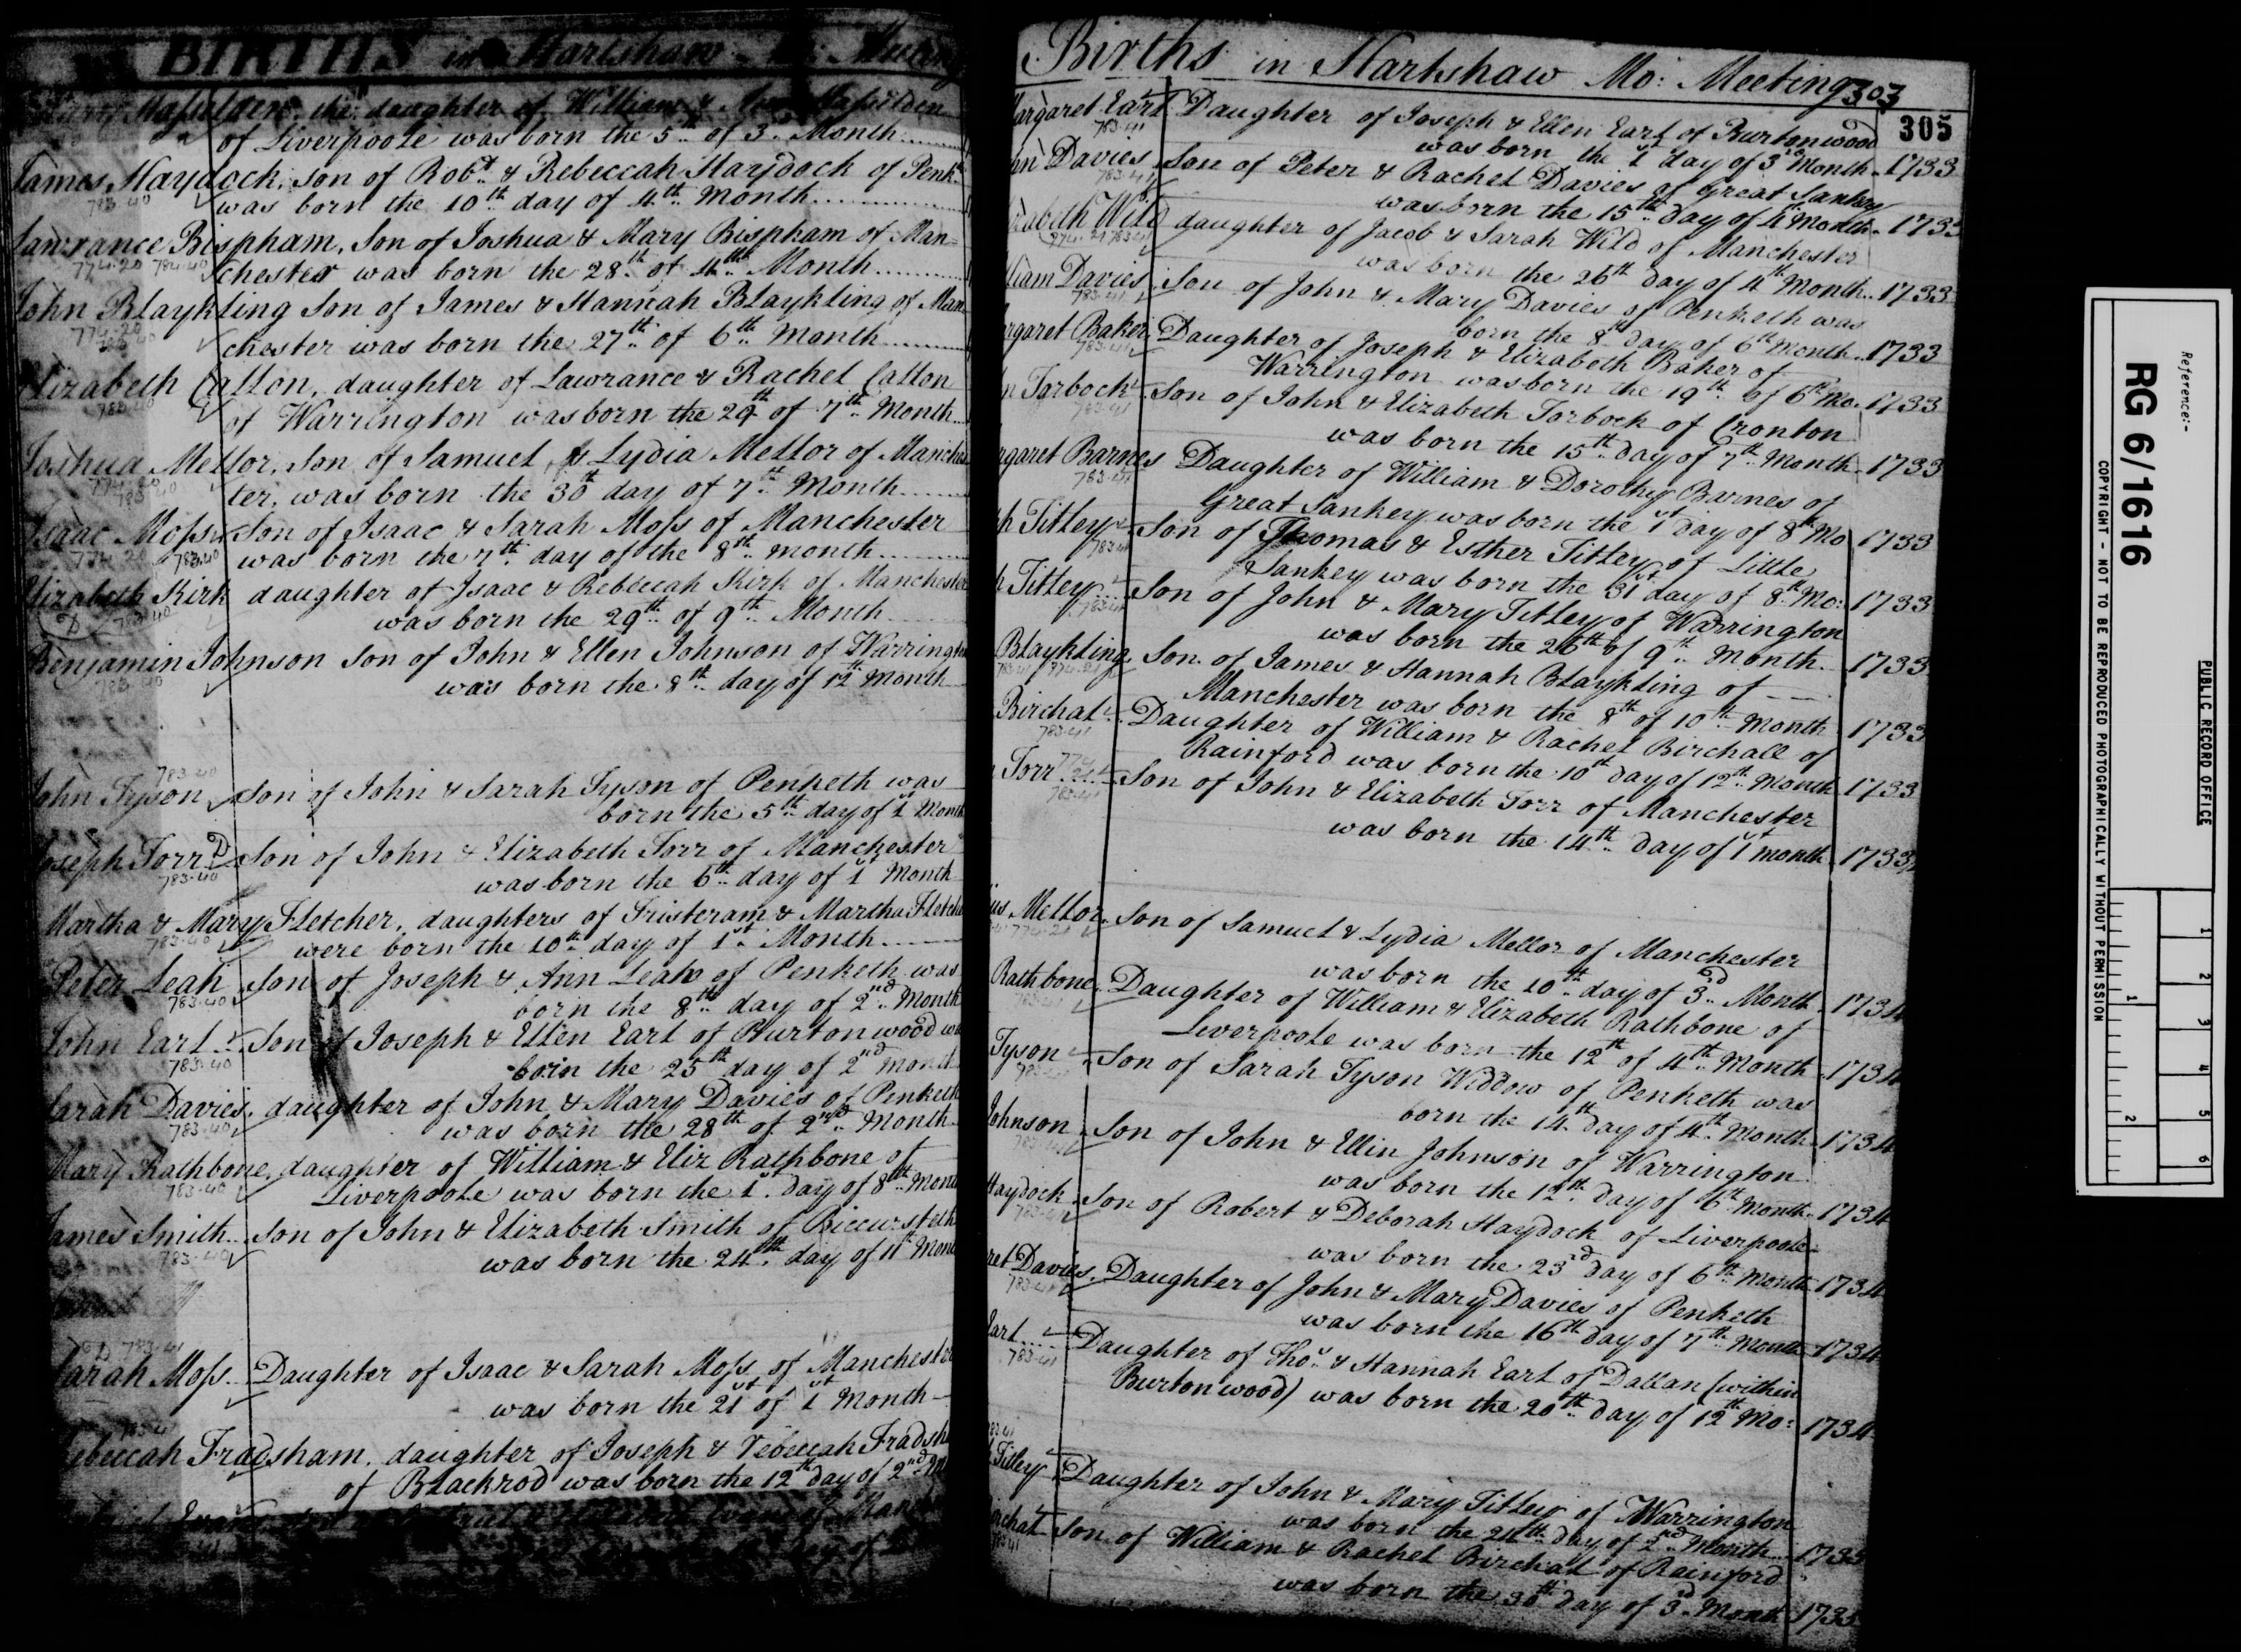 BIRTHS in Hartshaw Mo: Meeting
the daughter of William &
of Liverpoole was born the 5th of 3d Month
James Haydock, son of Robt. & Rebeccah Haydock of Penk
783·40 was born the 10th day of 4th Month
Lawrance Bispham, Son of Joshua & Mary Bispham of Man=
774·20 784·40 chester was born the 28th of 4th Month
John Blaykling Son of James & Hannah Blaykling of Man
774·20 chester was born the 27th of 6th Month
Elizabeth Catton, daughter of Lawrance & Rachel Catton
783·40 of Warrington was born the 29th of 7th Month
Joshua Mellor, Son of Samuel & Lydia Mellor of Manches
774·20 783·40 ter, was born the 30th day of 7th Month
Isaac Moss Son of Isaac & Sarah Moss of Manchester
774·20 783·40 was born the 7th day of the 8th month
Elizabeth Kirk daughter of Isaac & Rebeccah Kirk of Manchester
D 783·40 was born the 29th of 9th Month
Benjamin Johnson Son of John & Ellen Johnson of Warrington
783·40 was born the 8th day of 12th Month
783·40
John Tyson Son of John & Sarah Tyson of Penketh was
born the 5th day of 1st Month
Joseph Torr D Son of John & Elizabeth Torr of Manchester
783·40 was born the 6th day of 1st Month
Martha & Mary Fletcher, daughters of Tristeram & Martha Fletch
783·40 were born the 10th day of 1st Month
Peter Leah Son of Joseph & Ann Leah of Penketh was
783·40 born the 8th day of 2nd Month
John Earl Son of Joseph & Ellen Earl of Burtonwood wa
783·40 born the 25th day of 2nd Month
Sarah Davies, daughter of John & Mary Davies of Penketh
783·40 was born the 28th of 2nd Month
Mary Rathbone, daughter of William & Eliz Rathbone of
783·40 Liverpoole was born the 1st day of 8th Month
James Smith Son of John & Elizabeth Smith of Biccursteth
783·40 was born the 24th day of 11th Month
D 783·41
Sarah Moss Daughter of Isaac & Sarah Moss of Manchester
was born the 21st of 1st Month
783·41
Rebeccah Fradsham, daughter of Joseph & Rebeccah Fradsh
of Blackrod was born the 12th day of 2nd M
Births in Hartshaw Mo: Meeting 303
305
Margaret Earl Daughter of Joseph & Ellen Earl of Burtonwood
783·41 was born the 1st day of 3d Month 1733
hn Davies Son of Peter & Rachel Davies of Great Sankey
783·41 was born the 15th day of 4th Month 1733
zabeth Wild daughter of Jacob & Sarah Wild of Manchester
774·21 783·41 was born the 26th day of 4th Month 1733
liam Davies Son of John & Mary Davies of Penketh was
783·41 born the 8th day of 6th Month 1733
rgaret Baker Daughter of Joseph & Elizabeth Baker of
783·41 Warrington was born the 19th of 6th Mo. 1733
n Tarbock Son of John & Elizabeth Torbock of Cronton
783·41 was born the 15th day of 7th Month 1733
rgaret Barnes Daughter of William & Dorothy Barnes of
783·41 Great Sankey was born the 1st day of 8th Mo 1733
h Titley Son of Thomas & Esther Titley of Little
783·41 Sankey was born the 31st day of 8th Mo: 1733
h Titley Son of John & Mary Titley of Warrington
783·41 was born the 26th of 9th Month 1733
Blaykling Son of James & Hannah Blaykling of
783·41 774·21 Manchester was born the 8th of 10th Month 1733
Birchal Daughter of William & Rachel Birchall of
783·41 Rainford was born the 10th day of 12th Month 1733
Torr Son of John & Elizabeth Torr of Manchester
783·41 was born the 14th day of 1st month 1733
us Mellor Son of Samuel & Lydia Mellor of Manchester
774·21 was born the 10th day of 3d Month 1734
Rathbone Daughter of William & Elizabeth Rathbone of
Liverpoole was born the 12th of 4th Month 1734
Tyson Son of Sarah Tyson Widdow of Penketh was
born the 14th day of 4th Month 1734
Johnson Son of John & Ellin Johnson of Warrington
was born the 12th day of 6th Month 1734
Haydock Son of Robert & Deborah Haydock of Liverpoole
was born the 23rd day of 6th Month 1734
ret Davies, Daughter of John & Mary Davies of Penketh
783·41 was born the 16th day of 7th Month 1734
Earl Daughter of Thos. & Hannah Earl of Dallan (within
783·41 Burtonwood) was born the 20th day of 12th Mo: 1734
Titley Daughter of John & Mary Titley of Warrington
was born the 24th day of 2nd Month 1735
rchal Son of William & Rachel Birchal of Rainford
was born the 30th day of 3d Month 1735
Reference:-
RG 6/1616
PUBLIC RECORD OFFICE
COPYRIGHT - NOT TO BE REPRODUCED PHOTOGRAPHICALLY WITHOUT PERMISSION
1 2
1 2 3 4 5 6